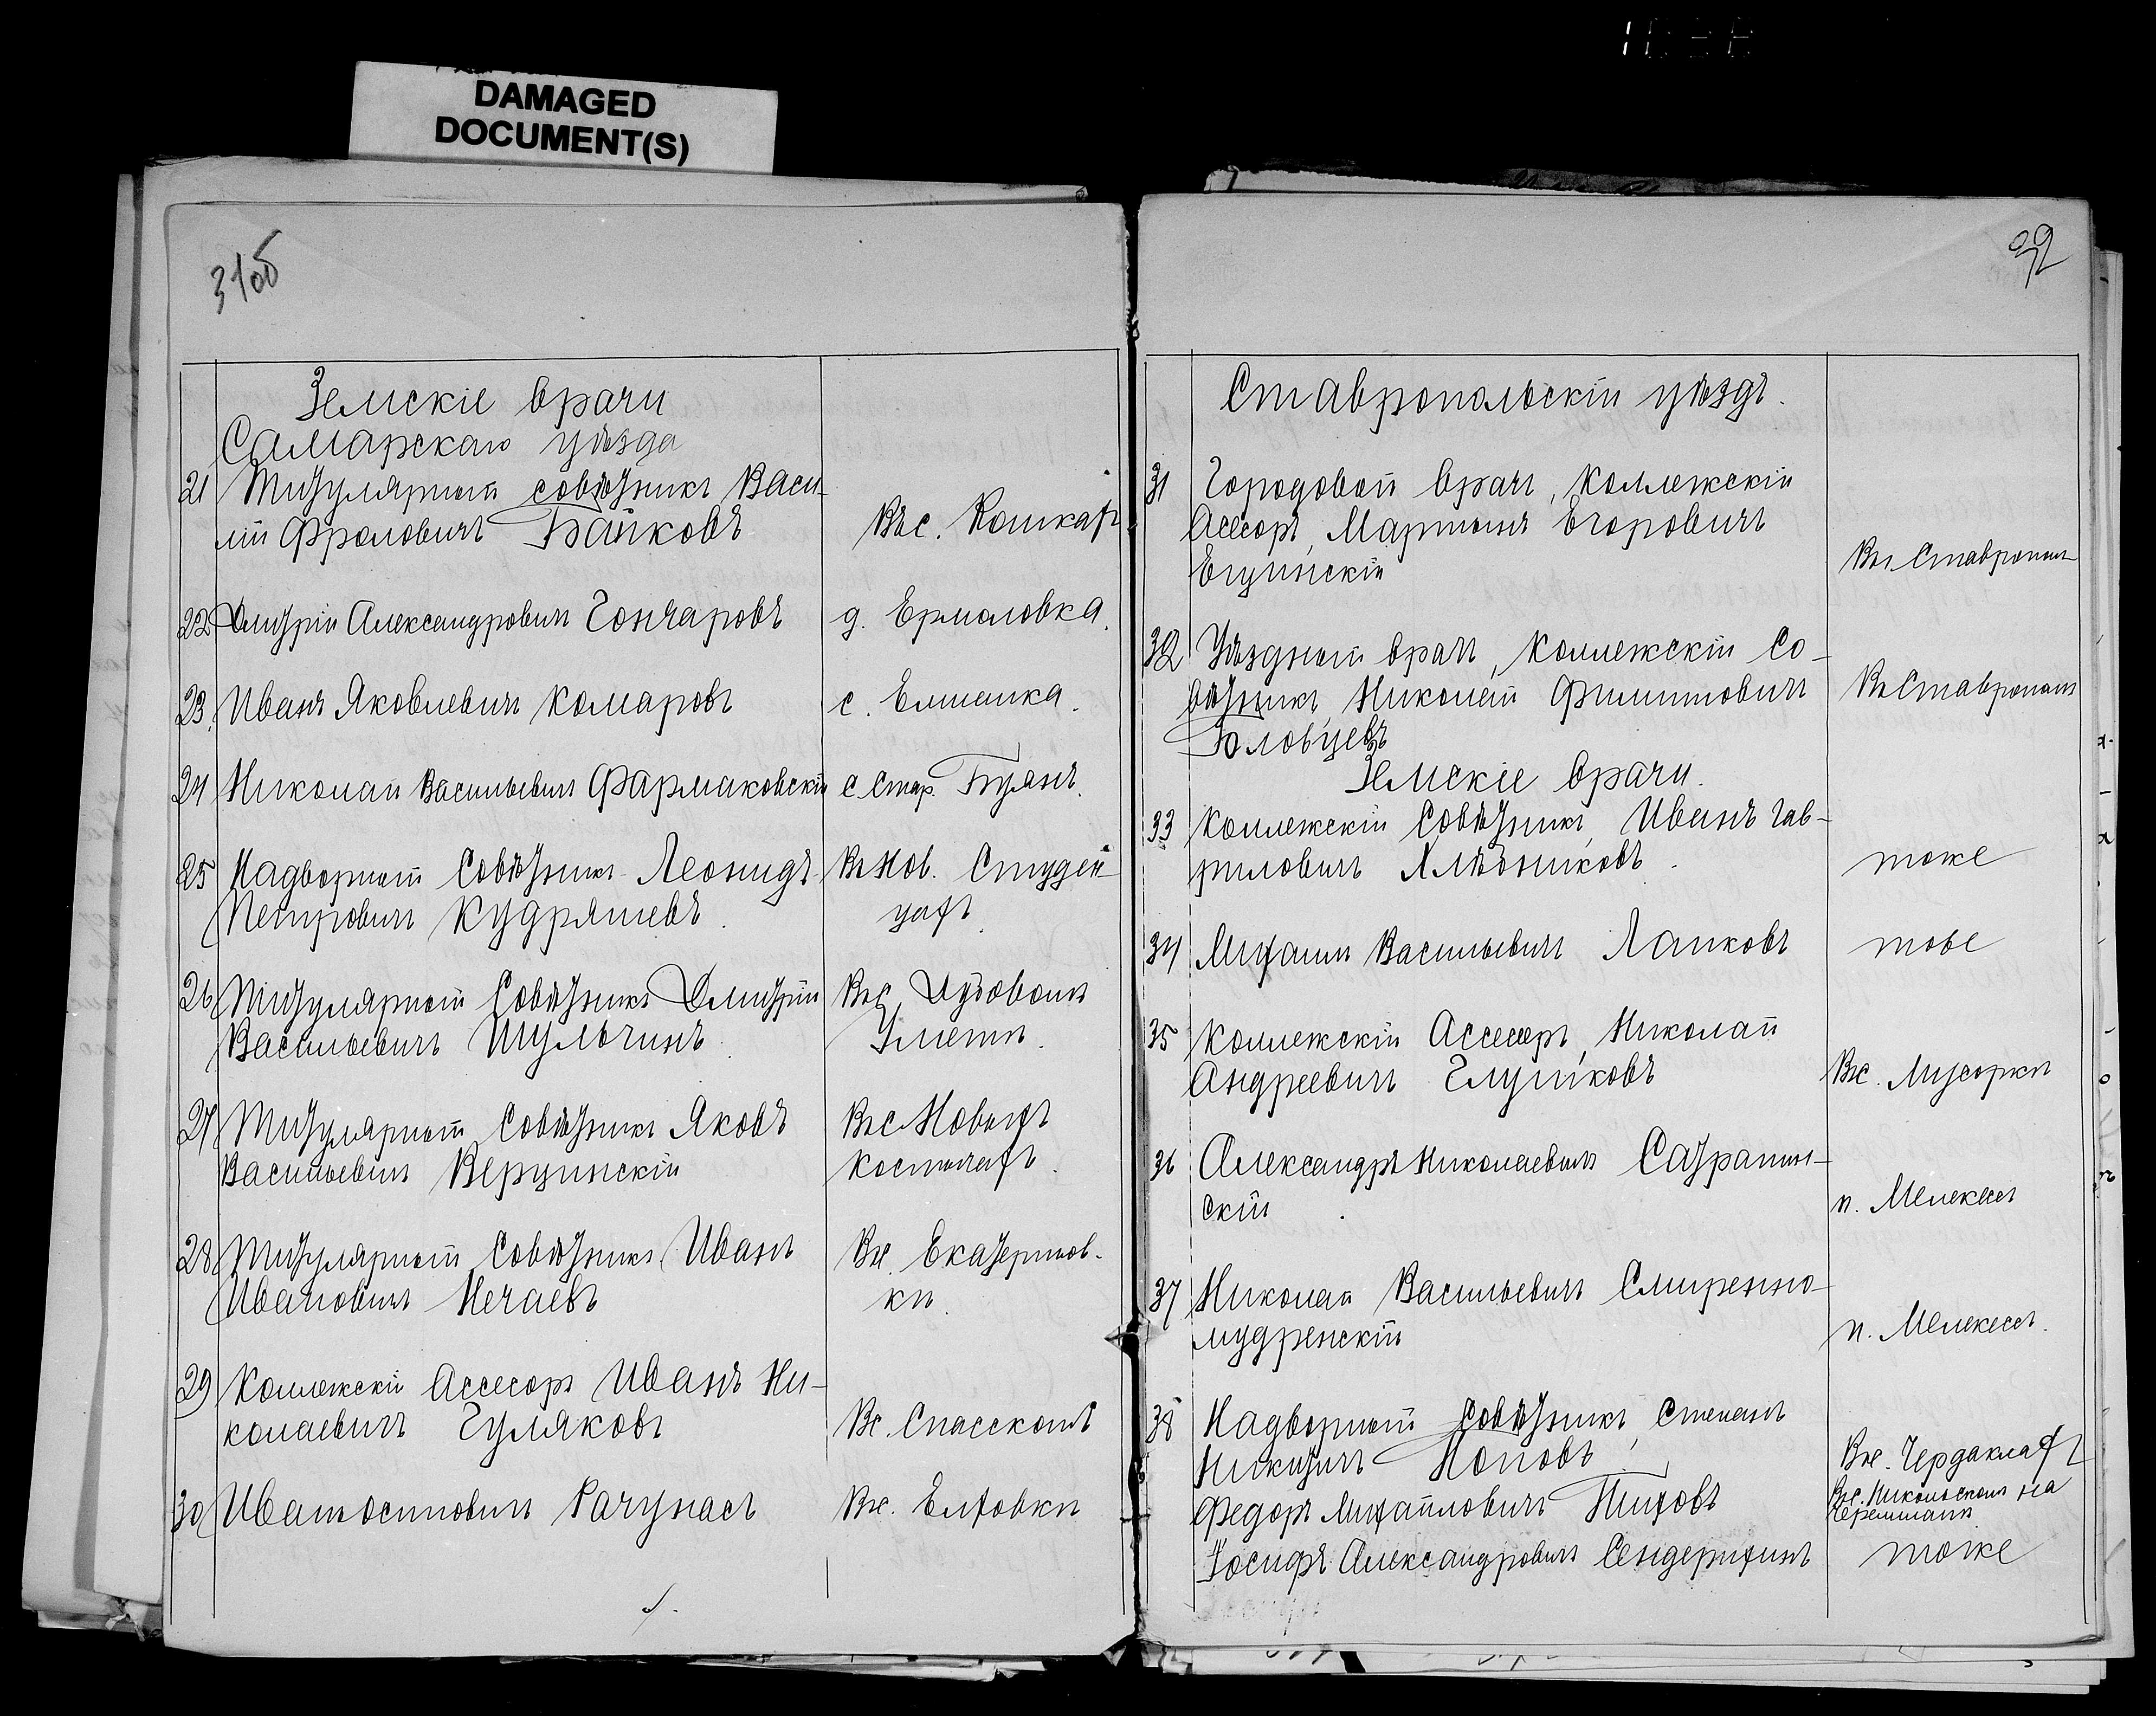 DAMAGED
DOCUMENT(S)
31об
Земскіе врачи
Самарскаго уѣзда
21 Титулярный совѣтникъ Васи-
лій Фроловичъ Байковъ
Въ с. Кошкахъ
22 Дмитрій Александровичъ Гончаровъ
д. Ермоловка.
23. Иванъ Яковлевичъ Комаровъ
с. Елшанка.
24 Николай Васильевичъ Фармаковскій
с. Стар. Буянъ.
25 Надворный Совѣтникъ Леонидъ
Петровичъ Кудряшевъ.
Въ Нов. Студен-
цахъ.
26 Титулярный Совѣтникъ Дмитрій
Васильевичъ Шульгинъ.
Въ с. Дубовомъ
Уметѣ.
27 Титулярный Совѣтникъ Яковъ
Васильевичъ
Въ с Новыхъ
Костычахъ.
28 Титулярный Совѣтникъ Иванъ
Ивановичъ Нечаевъ
Въ с. Екатеринов-
кѣ.
29 Коллежскій Ассесоръ Иванъ Ни-
колаевичъ Гуляковъ
Въ с. Спасскомъ
30 Иванъ Осиповичъ Рачунасъ
Въ с. Елховкѣ
32
Ставропольскій уѣздъ.
31 Городовой врачъ, Коллежскій
Ассесоръ, Мартынъ Егоровичъ
Въ г. Ставрополѣ
32 Уѣздный врачъ, Коллежскій Со-
вѣтникъ, Николай Филипповичъ
Въ Ставрополѣ
Земскіе врачи.
33 Коллежскій Совѣтникъ, Иванъ Гав-
риловичъ Хлѣбниковъ.
тоже
34 Михаилъ Васильевичъ Лапковъ
тоже
35 Коллежскій Ассесоръ, Николай
Андреевичъ Глушковъ
Въ с. Мусоркѣ
36 Александръ Николаевичъ
скій.
п. Мелекесъ
37 Николай Васильевичъ Смиренно-
мудренскій
п. Мелекесъ.
38 Надворный Совѣтникъ, Степанъ
Никитичъ Поповъ
Въ с. Чердаклахъ
Федоръ Михайловичъ Пиховъ
Въ с. Никольскомъ на
Черемшанѣ
Іосифъ Александровичъ Сендерихинъ
тоже